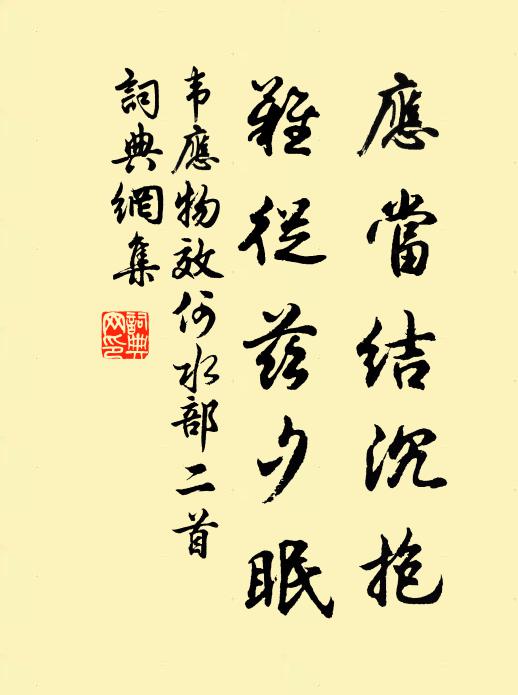 應當結沉抱
難從茲夕眠
韦應物效何水部二首
詞典網集
詞典网印